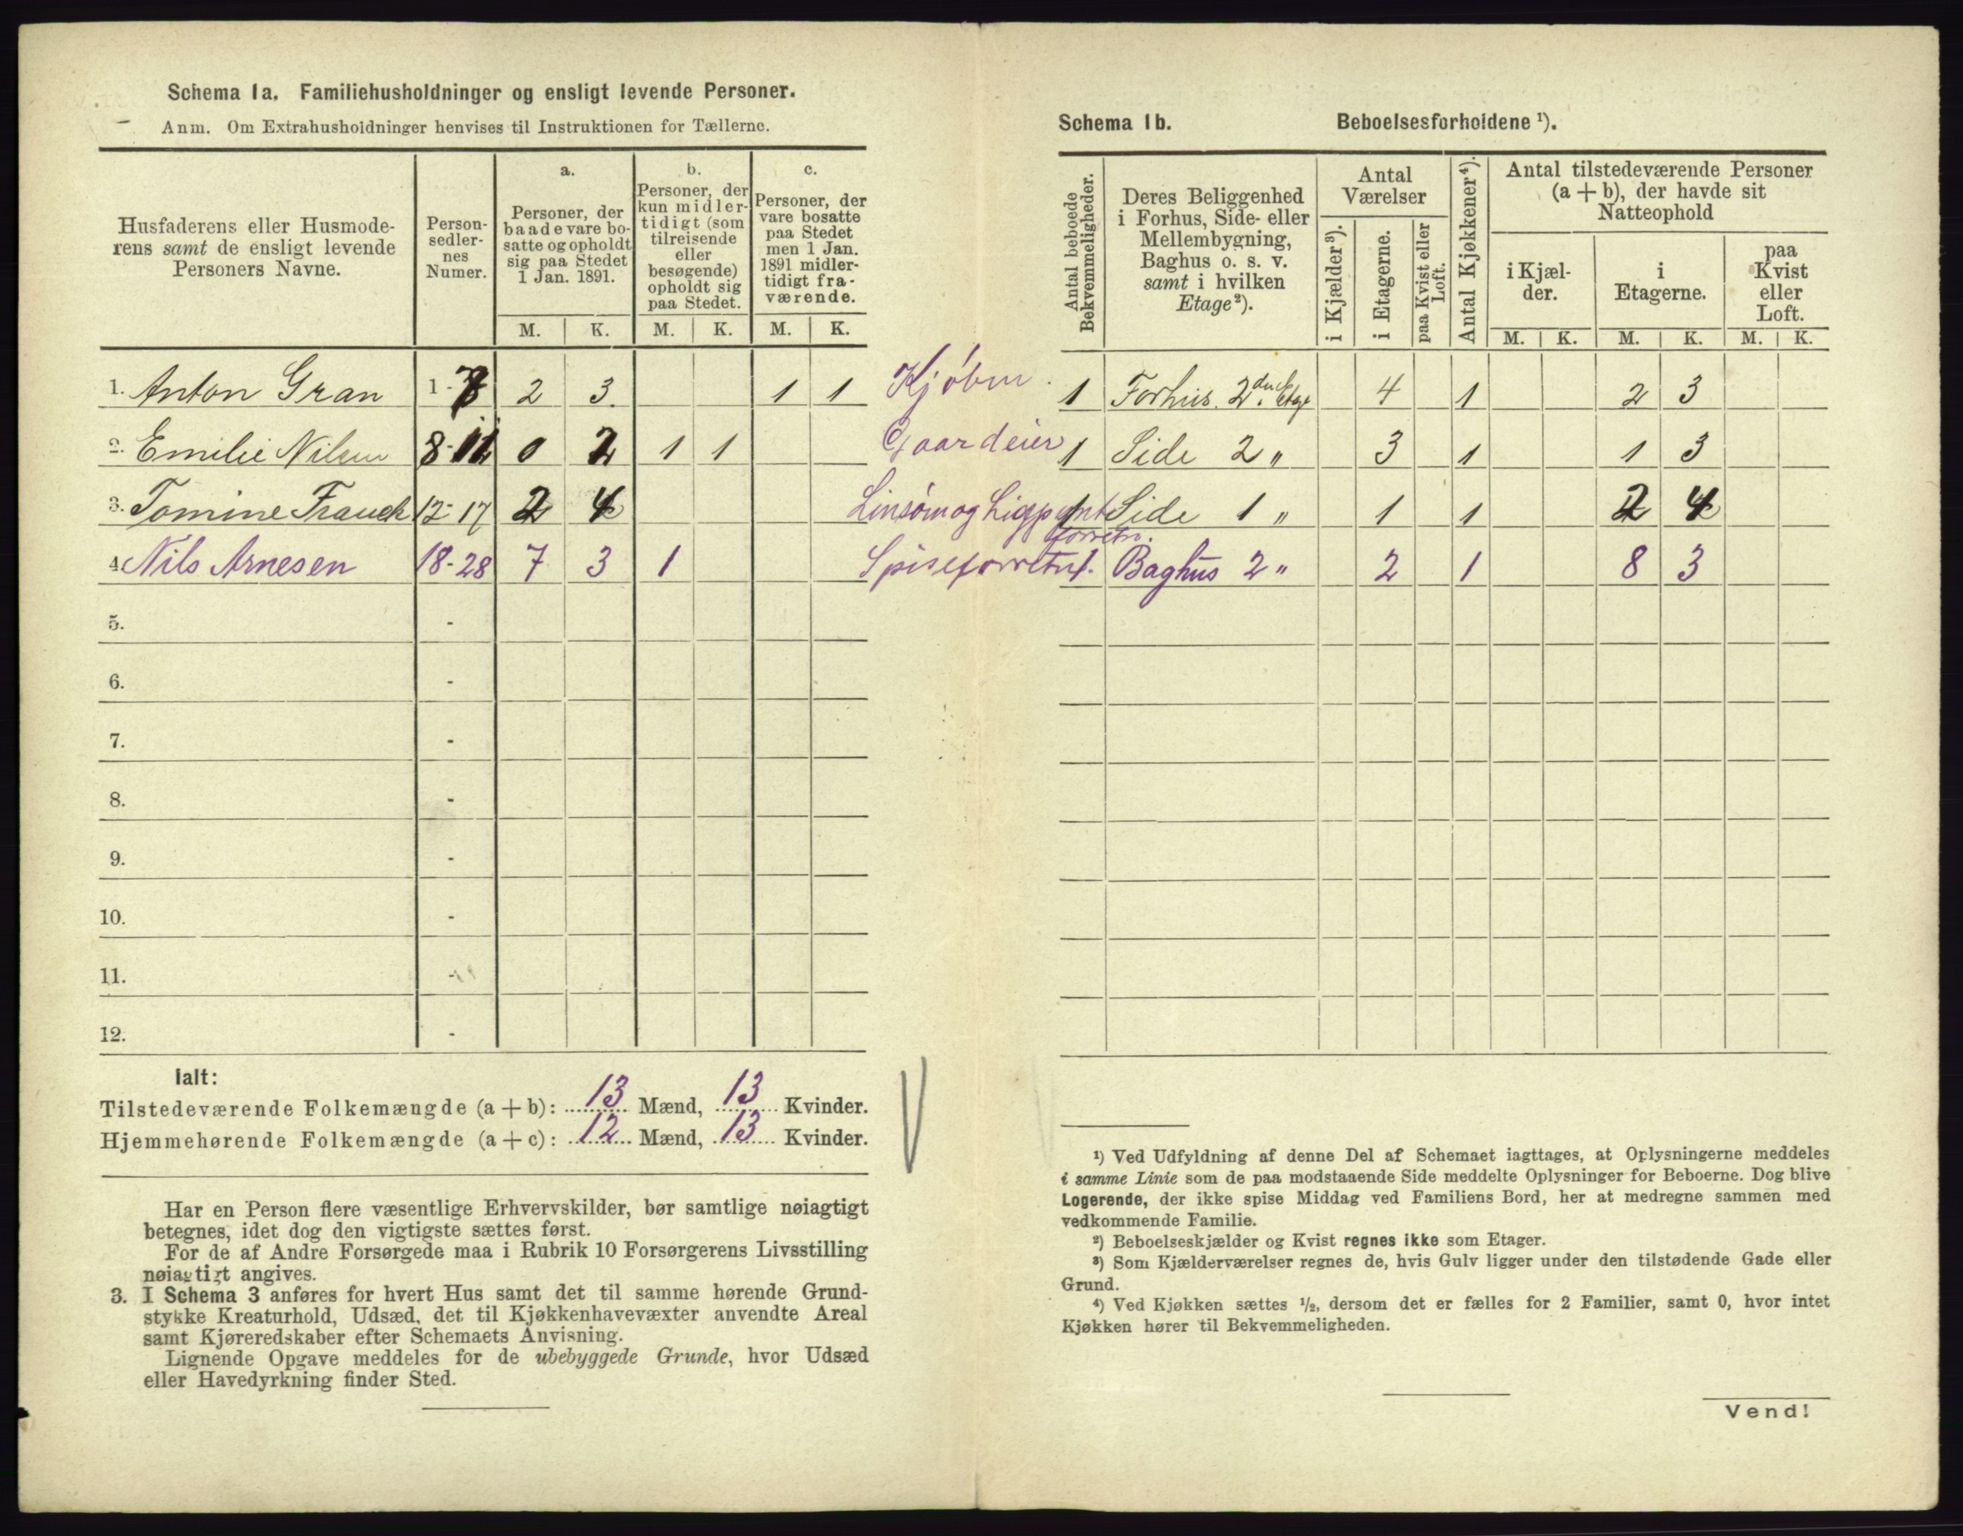 Schema 1a. Familiehusholdninger og ensligt levende Personer.
Anm. Om Extrahusholdninger henvises til Instruktionen for Tællerne.
Husfaderens eller Husmode-
rens samt de ensligt levende
Personers Navne.
Person-
sedler-
nes
Numer.
a.
Personer, der
baade vare bo-
satte og opholdt
sig paa Stedet
1 Jan. 1891.
b.
Personer, der
kun midler-
tidigt (som
tilreisende
eller
besøgende)
opholdt sig
paa Stedet.
c.
Personer, der
vare bosatte
paa Stedet
men 1 Jan.
1891 midler-
tidigt fra-
værende.
M. K. M. K. M. K.
1. Anton Gran 1 - 7 2 3 1 1 Kjøbm.
2. Emilie Nilsen 8 - 11 0 2 1 1 Gaardeier
3. Tomine Franck 12 - 17 2 4
4. Nils Arnesen 18 - 28 7 3 1 Spiseforretn.
5. -
6. -
7. -
8. -
9. -
10. -
11. -
12. -
Ialt:
Tilstedeværende Folkemængde (a + b): 13 Mænd, 13 Kvinder.
Hjemmehørende Folkemængde (a + c): 12 Mænd, 13 Kvinder.
Har en Person flere væsentlige Erhvervskilder, bør samtlige nøiagtigt
betegnes, idet dog den vigtigste sættes først.
For de af Andre Forsørgede maa i Rubrik 10 Forsørgerens Livsstilling
nøiagtigt angives.
3. I Schema 3 anføres for hvert Hus samt det til samme hørende Grund-
stykke Kreaturhold, Udsæd, det til Kjøkkenhavevæxter anvendte Areal
samt Kjøreredskaber efter Schemaets Anvisning.
Lignende Opgave meddeles for de ubebyggede Grunde, hvor Udsæd
eller Havedyrkning finder Sted.
Schema 1b. Beboelsesforholdene ¹).
Antal beboede
Bekvemmeligheder.
Deres Beliggenhed
i Forhus, Side- eller
Mellembygning,
Baghus o. s. v.
samt i hvilken
Etage²).
Antal
Værelser
i Kjælder³).
i Etagerne.
paa Kvist eller
Loft.
Antal Kjøkkener⁴).
Antal tilstedeværende Personer
(a + b), der havde sit
Natteophold
i Kjæl-
der.
i
Etagerne.
paa
Kvist
eller
Loft.
M. K. M. K. M. K.
1 Forhus. 2den Etage 4 1 2 3
1 Side 2 " 3 1 1 3
1 Side 1 " 1 1 2 4
1. Baghus 2 " 2 1 8 3
¹) Ved Udfyldning af denne Del af Schemaet iagttages, at Oplysningerne meddeles
i samme Linie som de paa modstaaende Side meddelte Oplysninger for Beboerne. Dog blive
Logerende, der ikke spise Middag ved Familiens Bord, her at medregne sammen med
vedkommende Familie.
²) Beboelseskjælder og Kvist regnes ikke som Etager.
³) Som Kjælderværelser regnes de, hvis Gulv ligger under den tilstødende Gade eller
Grund.
⁴) Ved Kjøkken sættes ½, dersom det er fælles for 2 Familier, samt 0, hvor intet
Kjøkken hører til Bekvemmeligheden.
Vend!